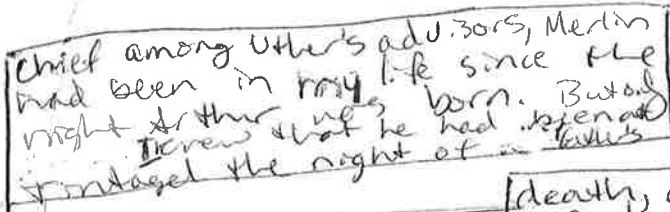 Chief among Uther's advisors, Merlin
had been in my life since the
night Arthur was born. But only
I knew that he had been at
Tintagel the night of
death,